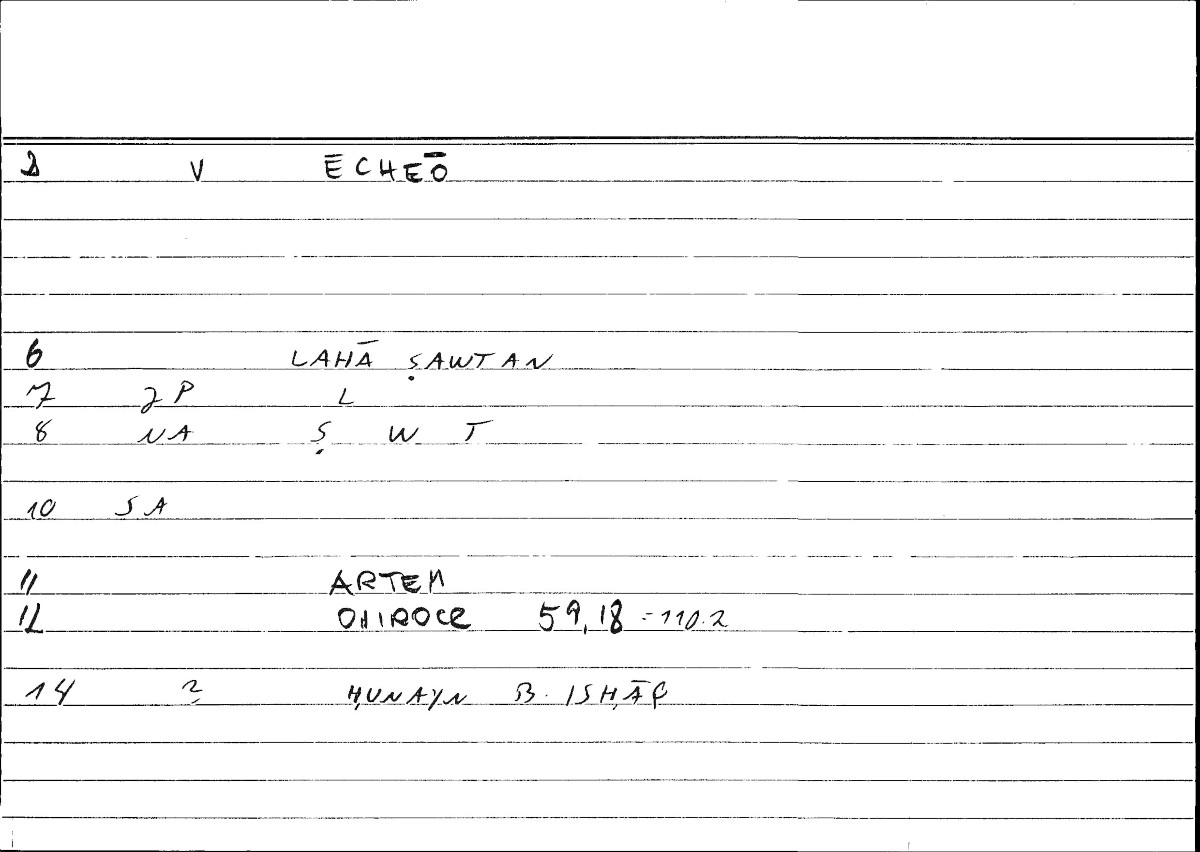 2 V ĒCHEŌ
6 LAHĀ ṢAWTAN
7 2P L
8 NA Ṣ W T
10 SA
11 ARTEM
12 ONIROCR 59,18 = 110.2
14 2 ḤUNAYN B. ISḤĀQ